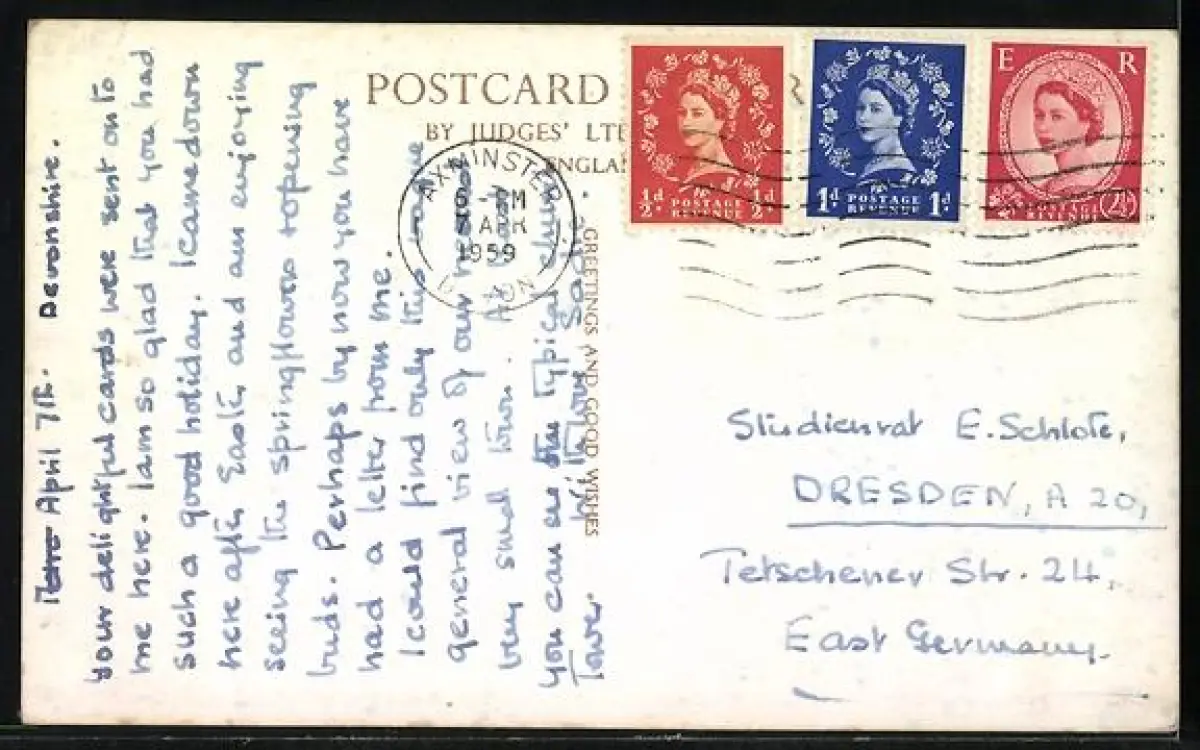 April 7th. Devonshire.
Your delightful cards were sent on to
me here. I am so glad that you had
such a good holiday. I came down
here after Easter, and am enjoying
seeing the spring flowers opening
buds. Perhaps by now you have
had a letter from me.
I could find only this large
general view of our
very small town. As
you can see the typical
Tower.
POSTCARD
BY JUDGES' LT
ENGLA
AXMINSTER
PM
APR
1959
GREETINGS AND GOOD WISHES
½d POSTAGE REVENUE ½d
1d POSTAGE REVENUE 1d
E R
POSTAGE REVENUE 2½d
Studienrat E. Schlote,
DRESDEN, A 20,
Tetschener Str. 24,
East Germany.